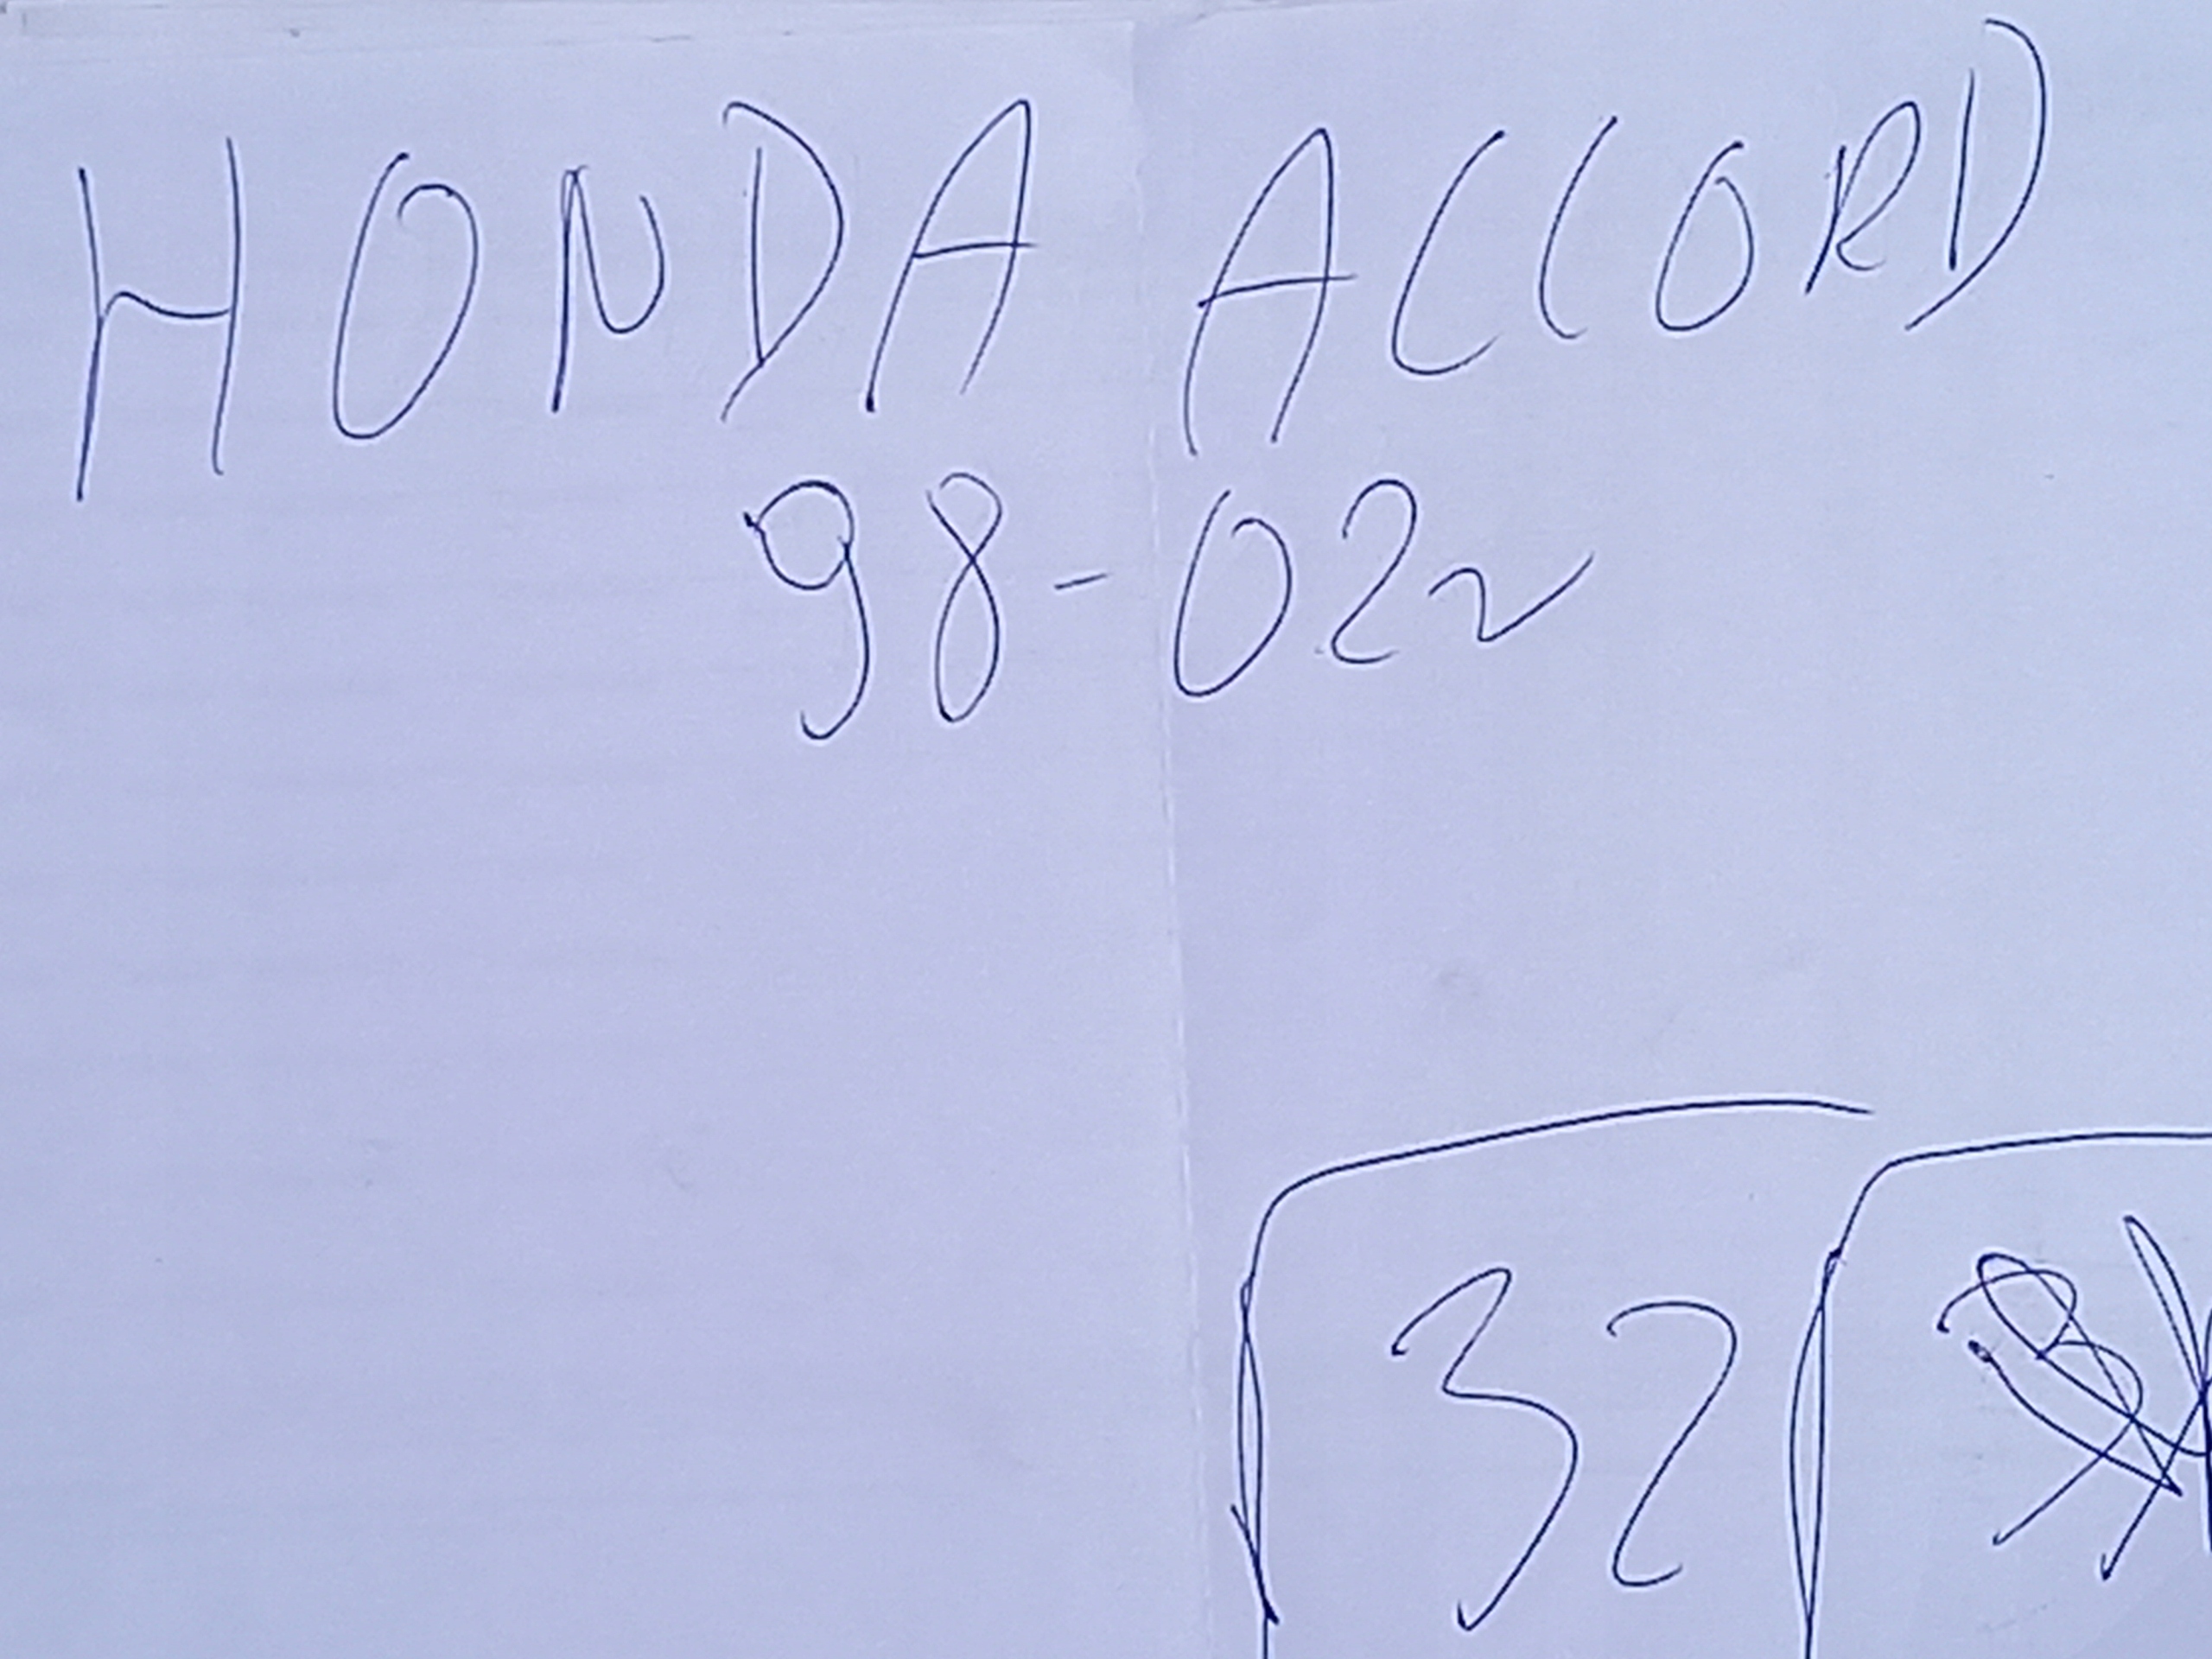 HONDA ACCORD
98-02r
32